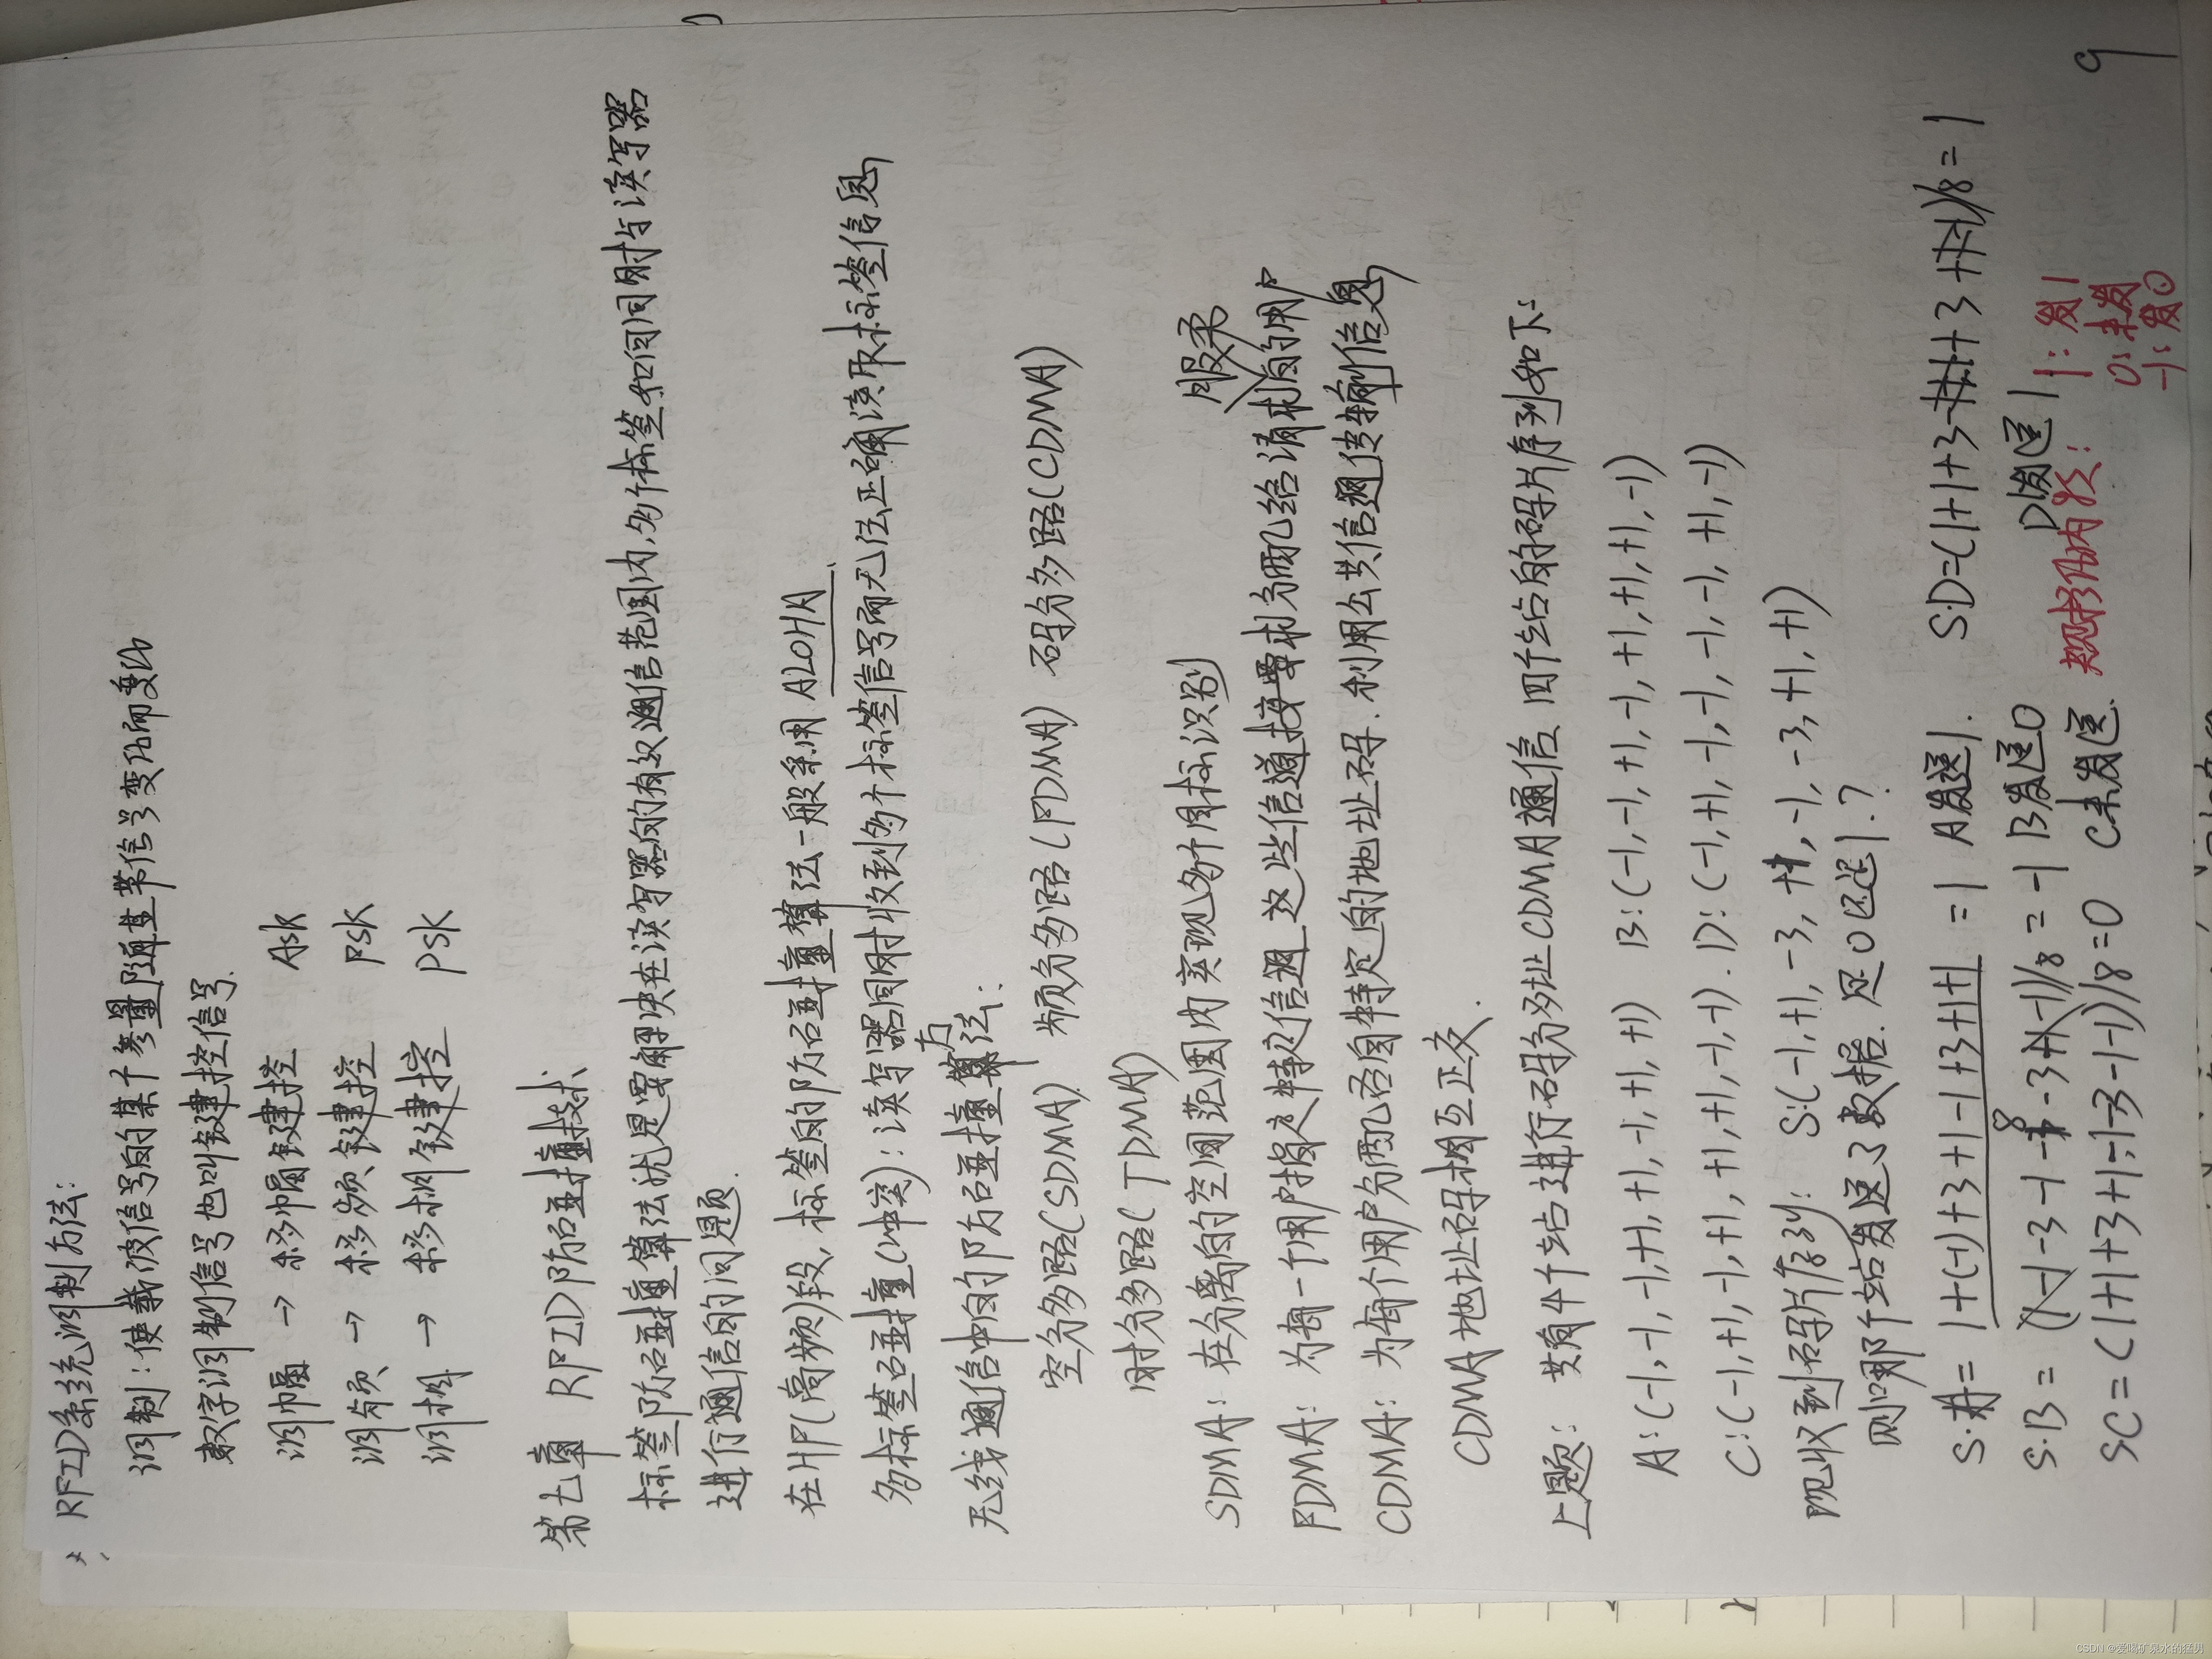 RFID系统调制方法:
调制:使载波信号的某个参量随基带信号变化而变化
数字调制信号也叫键控信号.
调幅 → 移幅键控 ASK
调频 → 移频键控 FSK
调相 → 移相键控 PSK
第七章 RFID防碰撞技术
标签防碰撞算法就是要解决在读写器的有效通信范围内,多个标签如何同时与读写器
进行通信的问题.
在HF(高频)段,标签的防碰撞算法一般采用ALOHA.
多标签碰撞(冲突):读写器同时收到多个标签信号而无法正确读取标签信息
无线通信中的防碰撞方法:
空分多路(SDMA) 频分多路(FDMA) 码分多路(CDMA)
时分多路(TDMA)
SDMA: 在分离的空间范围内实现多个目标识别
FDMA: 为每一个用户指定特定信道,这些信道按要求分配给请求服务的用户
CDMA: 为每个用户分配各自特定的地址码.利用公共信道传输信息
CDMA地址码相互正交.
上题: 共有4个站进行码分多址CDMA通信.四个站的码片序列如下:
A:(-1,-1,-1,+1,+1,-1,+1,+1) B:(-1,-1,+1,-1,+1,+1,+1,-1)
C:(-1,+1,-1,+1,+1,+1,-1,-1). D:(-1,+1,-1,-1,-1,-1,+1,-1)
现收到码片序列: S:(-1,+1,-3,+1,-1,-3,+1,+1)
则哪个站发送了数据.是0还是1.?
S·A= 1+(-1)+3+1-1+3+1+1 =1 A发送1. S·D=(1+1+3-1+1+3+1-1)/8=1
8
S·B= (1-1-3-1-1-3+1-1)/8=-1 B发送0 D发送1
SC=(1+1+3+1-1-3-1-1)/8=0 C未发送. 规格化内积: 1:发1
0:未发
-1:发0
9
CSDN @爱喝矿泉水的猛男